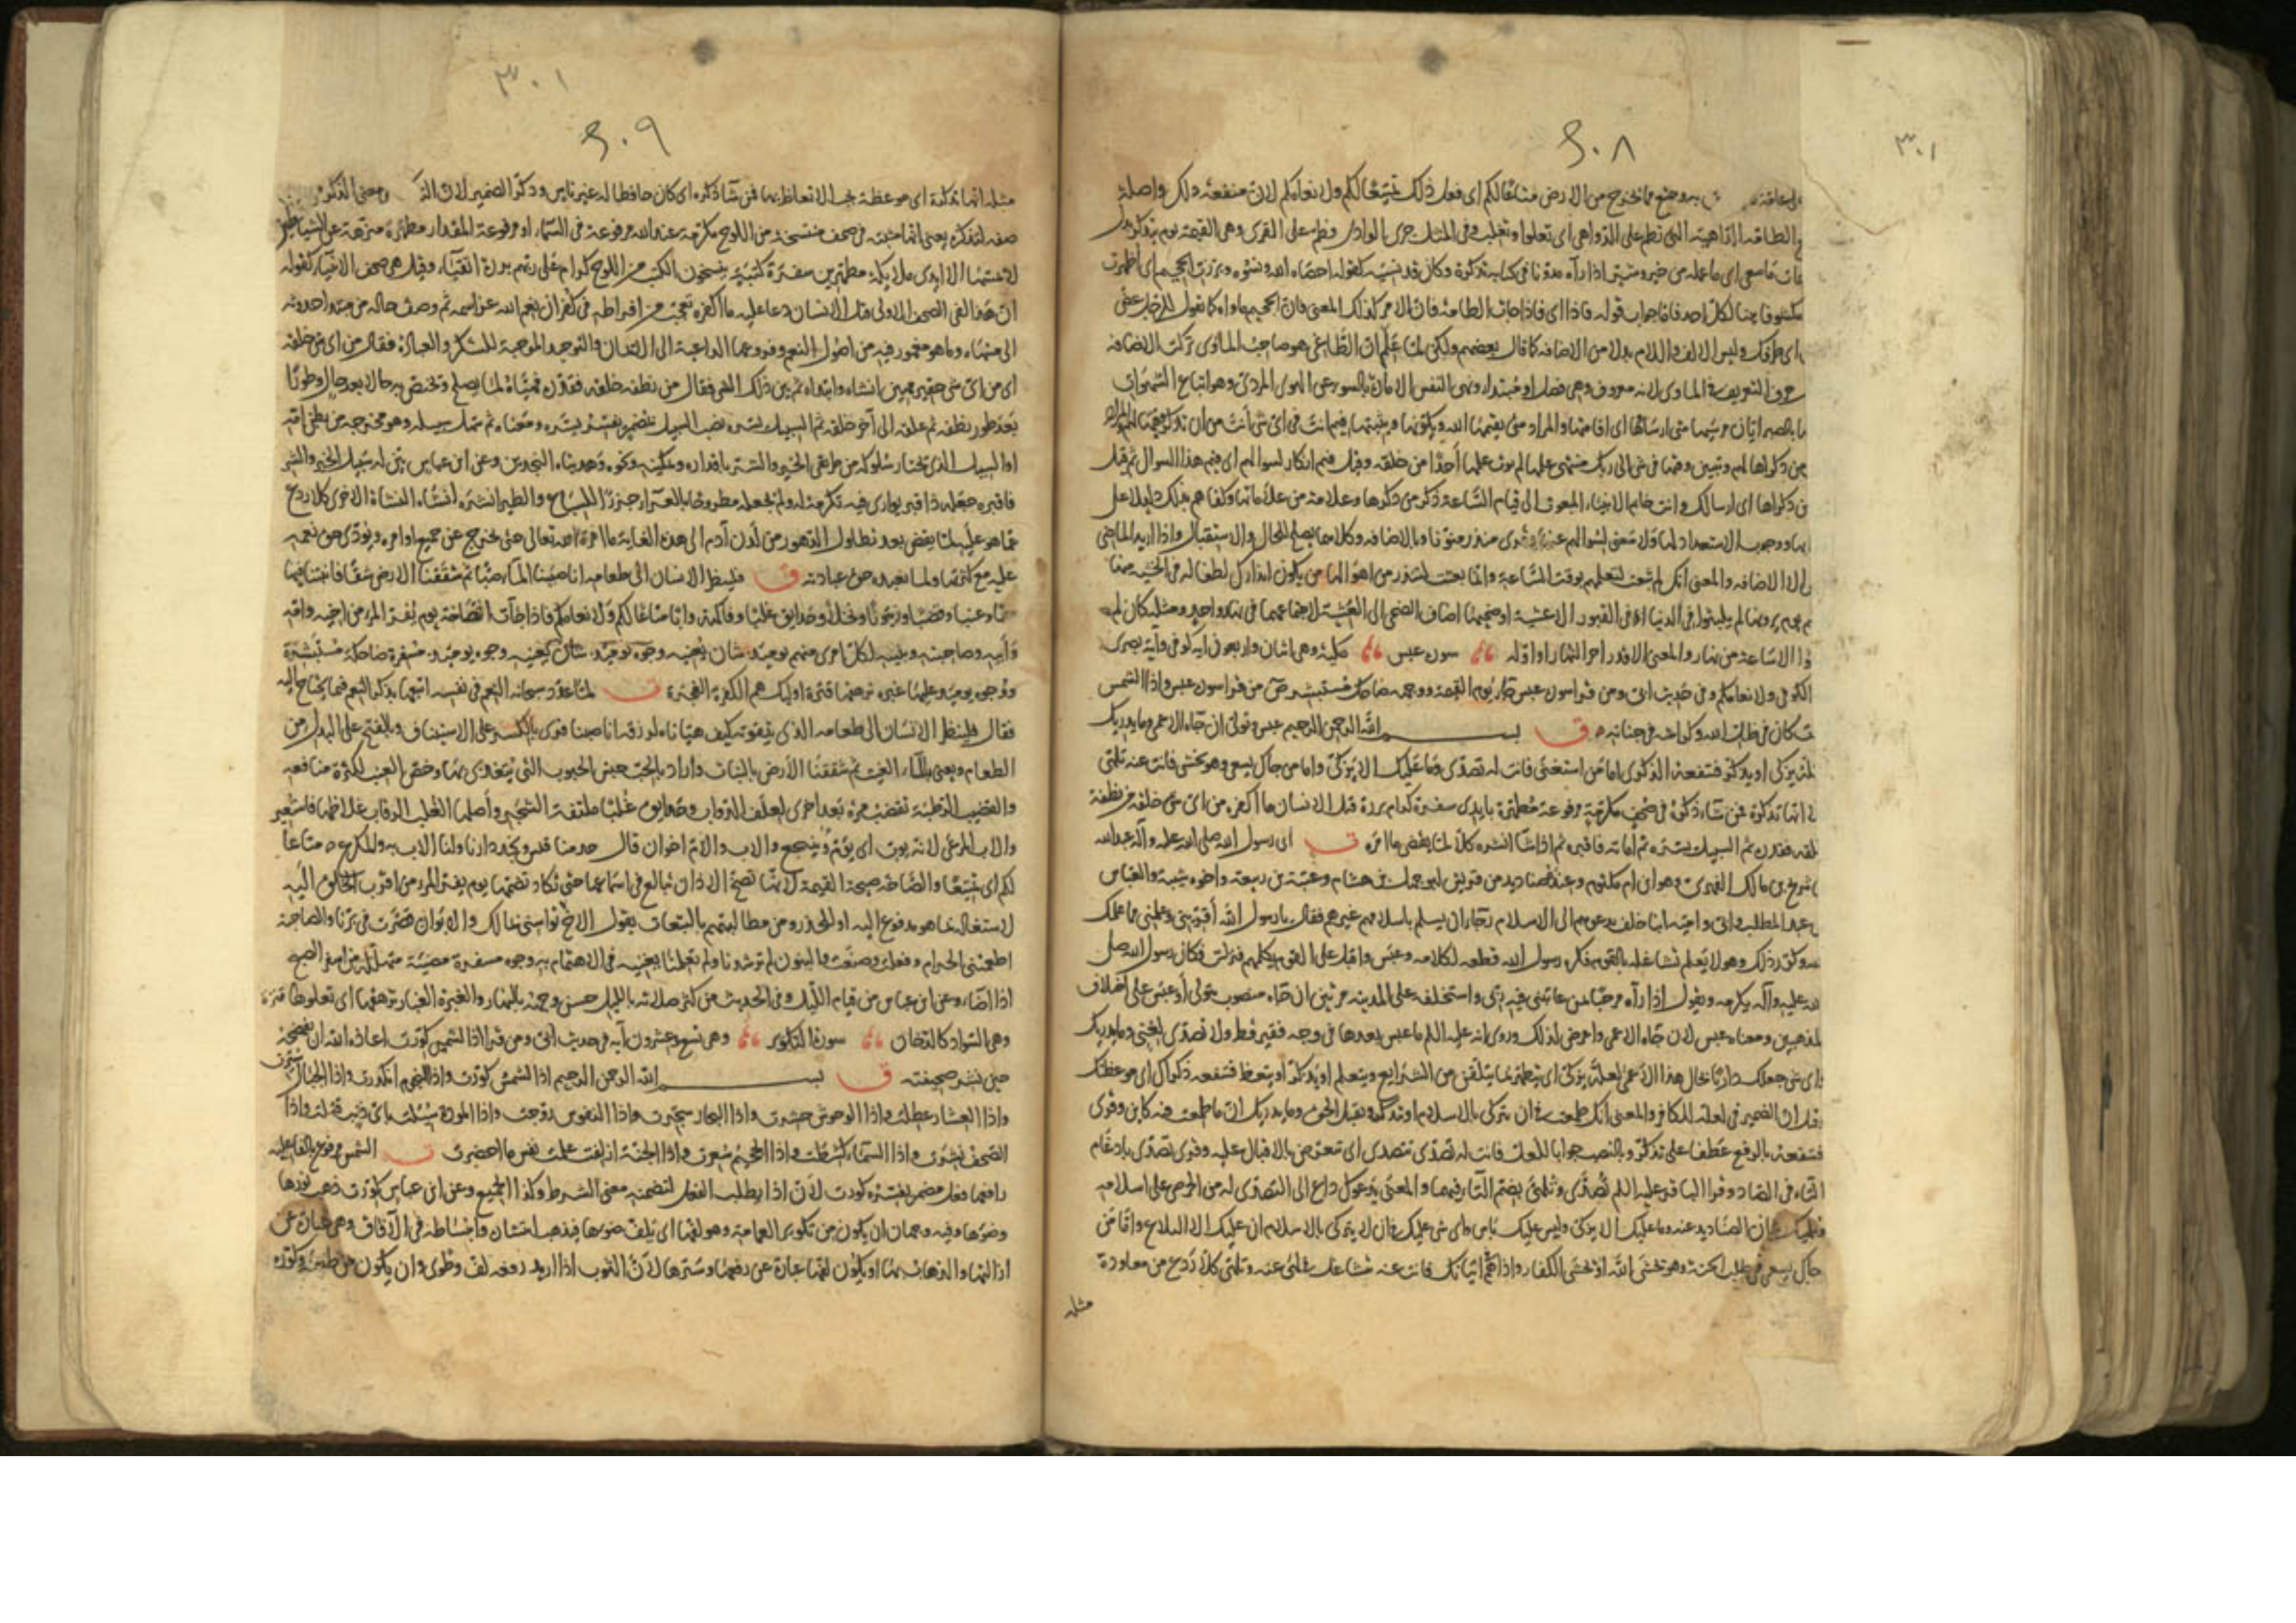 ٣٠١
٢٠٨
به ويتمتع مما يخرج من الارض متاعا لكم اى فعل ذلك تمتيعا لكم ولانعامكم لان منفعة ذلك واصلة
الطامة الداهية التى تطم على الدواهى اى تعلوا وتغلب وفى المثل جرى الوادى فطم على القرى وهى القيمة يوم يتذكر بدل
ما سعى اى ما عمله من خير وشر اذا رآه مدونا فى كتابه تذكره وكان قد نسيه كقوله احصاه الله ونسوه وبرزت الجحيم اى اظهرت
مكشوفا لكل احد فاما جواب قوله فاذا اى فاذا جاءت الطامة فان الامر كذلك المعنى فان الجحيم ماواه كما تقول للرجل غض
اى طرفك وليس الالف واللام بدلا من الاضافة كما قال بعضهم ولكن لما علم ان الطاغى هو صاحب الماوى تركت الاضافة
حرف التعريف فى الماوى لانه معروف وهى فصل او مبتداء ونهى النفس الامارة بالسوء عن الهوى المردى وهو اتباع الشهوات
بالصبر ايان مرسيها متى ارساؤها اى اقامتها والمراد متى يقيمها الله ويكونها ويثبتها فيم انت فى اى شى انت من ان تذكر وقتها لهم المراد
من ذكراها لهم وتبيين وقتها فى شى الى ربك منتهى علمها لم يوت علمها احدا من خلقه وقيل فيم انكار لسوالهم اى فيم هذا السوال ثم قيل
من ذكراها اى ارسالك وانت خاتم الانبياء المبعوث الى قيام الساعة ذكر من ذكرها وعلامة من علاماتها وكفاهم بذلك دليلا على
ووجوب الاستعداد لها ولا معنى لسوالهم عنها قرى منذر منونا وبالاضافة وكلاهما يصلح للحال والاستقبال واذا اريد الماضى
الا الاضافة والمعنى انك لم تبعث لتعلمهم بوقت الساعة وانما بعثت لتنذر من اهوالها من يكون انذارك لطفا له فى الخشية منها
يوم يرونها لم يلبثوا فى الدنيا او فى القبور الا عشية او ضحيها اضاف الضحى الى العشية لاجتماعهما فى نهار واحد ومثله كان لم
الا ساعة من نهار والمعنى الا قدر اخر النهار او اوله سورة عبس مكية وهى اثنان واربعون اية كوفى واية بصرى
الكوفى ولانعامكم وفى حديث ابى ومن قرا سورة عبس جاء يوم القيمة ووجهه ضاحك مستبشر ص من قرا سورة عبس واذا الشمس
كان فى ظل الله وكرامته فى جناته ق بسم الله الرحمن الرحيم عبس وتولى ان جاءه الاعمى وما يدريك
لعله يزكى او يذكر فتنفعه الذكرى اما من استغنى فانت له تصدى وما عليك الا يزكى واما من جاك يسعى وهو يخشى فانت عنه تلهى
انها تذكرة فمن شاء ذكره فى صحف مكرمة مرفوعة مطهرة بايدى سفرة كرام بررة قتل الانسان ما اكفره من اى شى خلقه من نطفة
خلقه فقدره ثم السبيل يسره ثم اماته فاقبره ثم اذا شا انشره كلا لما يقض ما امره ت اى رسول الله صلى الله عليه وآله عبدالله
شريح بن مالك الفهرى وهو ابن ام مكتوم وعنده صناديد من قريش ابو جهل بن هشام وعتبة بن ربيعة واخوه شيبة والعباس
عبد المطلب وابى وامية ابنا خلف يدعوهم الى الاسلام رجاء ان يسلم باسلامهم غيرهم فقال يا رسول الله اقرئنى وعلمنى مما علمك
وكرر ذلك وهو لا يعلم تشاغله بالقوم فكره رسول الله قطعه لكلامه وعبس واقبل على القوم يكلمهم فنزلت فكان رسول الله صلى
الله عليه وآله يكرمه ويقول اذا رآه مرحبا بمن عاتبنى فيه ربى واستخلفه على المدينة مرتين ان جاءه منصوب بتولى او عبس على اختلاف
المذهبين ومعناه عبس لان جاءه الاعمى واعرض لذلك وروى انه عليه السلم ما عبس بعدها فى وجه فقير قط ولا تصدى لغنى وما يدريك
اى شى جعلك داريا بحال هذا الاعمى لعله يزكى اى يتطهر بما يتلقن من الشرايع ويتعلم او يذكر او يتعظ فتنفعه ذكراك اى موعظتك
قيل ان الضمير فى لعله للكافر والمعنى انك طمعت فى ان يتزكى بالاسلام او يتذكر ويقبل الحق وما يدريك ان ما طمعت فيه كاين وقرى
فتنفعه بالرفع عطفا على يذكر وبالنصب جوابا للعل فانت له تصدى تتصدى اى تتعرض بالاقبال عليه وقرى تصدى بادغام
التاء فى الصاد وقرا الباقر عليه السلم تصدى وتلهى بضم التاء فيهما والمعنى يدعوك داع الى التصدى له من الحرص على اسلامه
شان الصناديد عنه وما عليك الا يزكى وليس عليك باس واى شى عليك فى ان لا يتزكى بالاسلام ان عليك الا البلاغ واما من
جاك يسعى فى طلب الخير وهو يخشى الله او يخشى الكفار واذاهم اتيانك فانت عنه تشاغل تلهى عنه وتلتهى كلا ردع عن معاودة
مثله
٣٠١
٢٠٩
مثله انها تذكرة اى موعظة يجب الاتعاظ بها فمن شا ذكره اى كان حافظا له غير ناس وذكر الضمير لان ومعنى الذكر
صفه لتذكرة يعنى انها مثبتة فى صحف منتسخة من اللوح مكرمة عند الله مرفوعة فى السماء او مرفوعة المقدار مطهرة منزهة عن الشياطين
لا يمسها الا ايدى ملايكة مطهرين سفرة كتبة ينسخون الكتب من اللوح كرام على ربهم بررة اتقياء وقيل هى صحف الانبياء كقوله
ان هذا لفى الصحف الاولى قتل الانسان دعا عليه ما اكفره تعجب من افراطه فى كفران نعم الله عز اسمه ثم وصف حاله من مبتدا حدوثه
الى منتهاه وما هو مغمور فيه من اصول النعم وفروعها الداعية الى الايمان والتوحيد الموجبة للشكر والعبادة فقال من اى شى خلقه
اى من اى شى حقير مهين انشاه وابتداه ثم بين ذلك الشى فقال من نطفة خلقه فقدره فهياه لما يصلح وتختص به حالا بعد حال وطورا
بعد طور نطفة ثم علقة الى آخر خلقه ثم السبيل يسره نصب السبيل بمضمر يفسره يسره ومعناه ثم سهل سبيله وهو مخرجه من بطن امه
او السبيل الذى يختار سلوكه من طريقى الخير والشر باقداره وتمكينه ونحوه وهديناه النجدين وعن ابن عباس بين له سبيل الخير والشر
فاقبره جعله ذا قبر يوارى فيه تكرمة له ولم يجعله مطروحا بالعراء جزرا للسباع والطير انشره انشاه النشاة الاخرى كلا ردع
عما هو عليه لما يقض بعد تطاول الدهور من لدن آدم الى هذه الغاية ما امره الله تعالى حتى يخرج عن جميع اوامره ويودى حق نعمه
عليه مع كثرتها ولما يعبده حق عبادته ق فلينظر الانسان الى طعامه انا صببنا الماء صبا ثم شققنا الارض شقا فانبتنا فيها
حبا وعنبا وقضبا وزيتونا ونخلا وحدايق غلبا وفاكهة وابا متاعا لكم ولانعامكم فاذا جاءت الصاخة يوم يفر المرء من اخيه وامه
وابيه وصاحبته وبنيه لكل امرى منهم يوميذ شان يغنيه وجوه يوميذ مسفرة ضاحكة مستبشرة
ووجوه يوميذ عليها غبرة ترهقها قترة اوليك هم الكفرة الفجرة ت لما عدد سبحانه النعم فى نفسه اتبعها بذكر النعم فيما يحتاج اليه
فقال فلينظر الانسان الى طعامه الذى يتقوته كيف هيانا له رزقه انا صببنا قرى بالكسر على الاستيناف وبالفتح على البدل من
الطعام ويعنى بالماء الغيث ثم شققنا الارض بالنبات واراد بالحب جنس الحبوب التى يتغذى بها وخص العنب لكثرة منافعه
والقضب الرطبة تقضب مرة بعد اخرى لعلف الدواب وحدايق غلبا ملتفة الشجر واصلها الغلب الرقاب غلاظها فاستعير
والاب المرعى لانه يوب اى يوم وينتجع والاب والام اخوان قال جذمنا قيس ونجد دارنا ولنا الاب به والمكرع متاعا
لكم اى تمتيعا والصاخة صيحة القيمة لانها تصخ الاذان تبالغ فى اسماعها حتى تكاد تصمها يوم يفر المرء من اقرب الخلق اليه
لاشتغاله بما هو مدفوع اليه او للحذر من مطالبتهم بالتبعات يقول الاخ لم تواسنى بمالك والابوان قصرت فى برنا والصاحبة
اطعمتنى الحرام وفعلت وصنعت والبنون لم ترشدنا ولم تعلمنا يغنيه فى الاهتمام به وجوه مسفرة مضيئة متهللة من اسفر الصبح
اذا اضاء وعن ابن عباس من قيام الليل وفى الحديث من كثر صلاته بالليل حسن وجهه بالنهار والغبرة الغبار ترهقها اى تعلوها قترة
وهى السواد كالدخان سورة التكوير وهى تسع وعشرون آية فى حديث ابى ومن قرا اذا الشمس كورت اعاذه الله ان يفضحه
حين ينشر صحيفته ق بسم الله الرحمن الرحيم اذا الشمس كورت واذا النجوم انكدرت واذا الجبال سيرت
واذا العشار عطلت واذا الوحوش حشرت واذا البحار سجرت واذا النفوس زوجت واذا الموودة سئلت باى ذنب قتلت واذا
الصحف نشرت واذا السماء كشطت واذا الجحيم سعرت واذا الجنة ازلفت علمت نفس ما احضرت ت الشمس مرفوع بالفاعلية
رافعها فعل مضمر يفسره كورت لان اذا يطلب الفعل لتضمنه معنى الشرط وكذا الجميع وعن ابن عباس كورت ذهب نورها
وضوءها وفيه وجهان ان يكون من تكوير العمامة وهو لفها اى يلف ضوءها فيذهب انتشاره وانبساطه فى الآفاق وهى عبارة عن
ازالتها والذهاب بها او يكون لفها عبارة عن رفعها وسترها لان الثوب اذا اريد رفعه لف وطوى وان يكون من طعنه وكوره